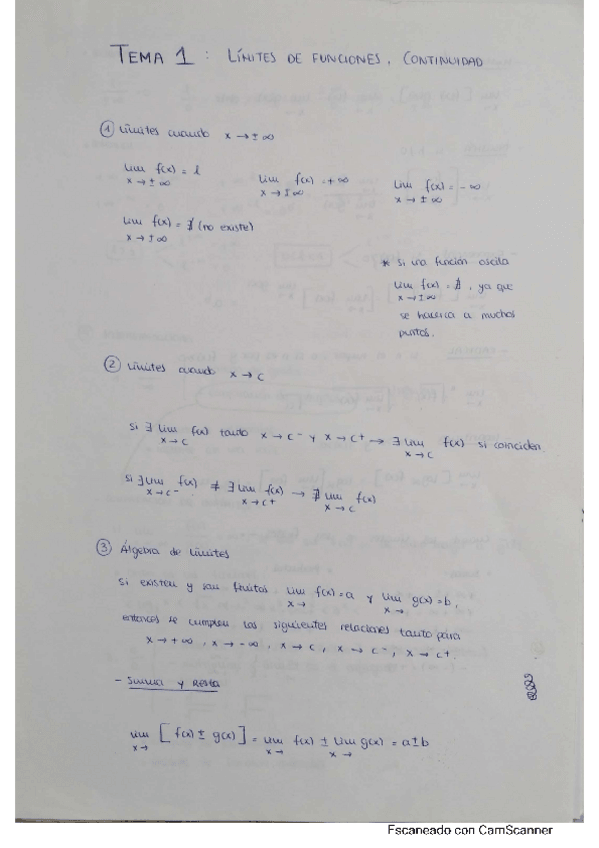 TEMA 1 : LÍMITES DE FUNCIONES. CONTINUIDAD
① Límites cuando x → ± ∞
lim f(x) = l
x → ± ∞
lim f(x) = + ∞
x → ± ∞
lim f(x) = - ∞
x → ± ∞
lim f(x) = ∄ (no existe)
x → ± ∞
* si una función oscila
lim f(x) = ∄, ya que
x → ± ∞
se acerca a muchos
puntos.
② Límites cuando x → c
si ∃ lim f(x) tanto x → c⁻ y x → c⁺ → ∃ lim f(x) si coinciden
x → c x → c
si ∃ lim f(x) ≠ ∃ lim f(x) → ∄ lim f(x)
x → c⁻ x → c⁺ x → c
③ Álgebra de límites
Si existen y son finitos lim f(x) = a y lim g(x) = b,
x → x →
entonces se cumplen las siguientes relaciones tanto para
x → + ∞, x → - ∞, x → c, x → c⁻, x → c⁺.
- Suma y Resta
lim [f(x) ± g(x)] = lim f(x) ± lim g(x) = a ± b
x → x → x →
Escaneado con CamScanner